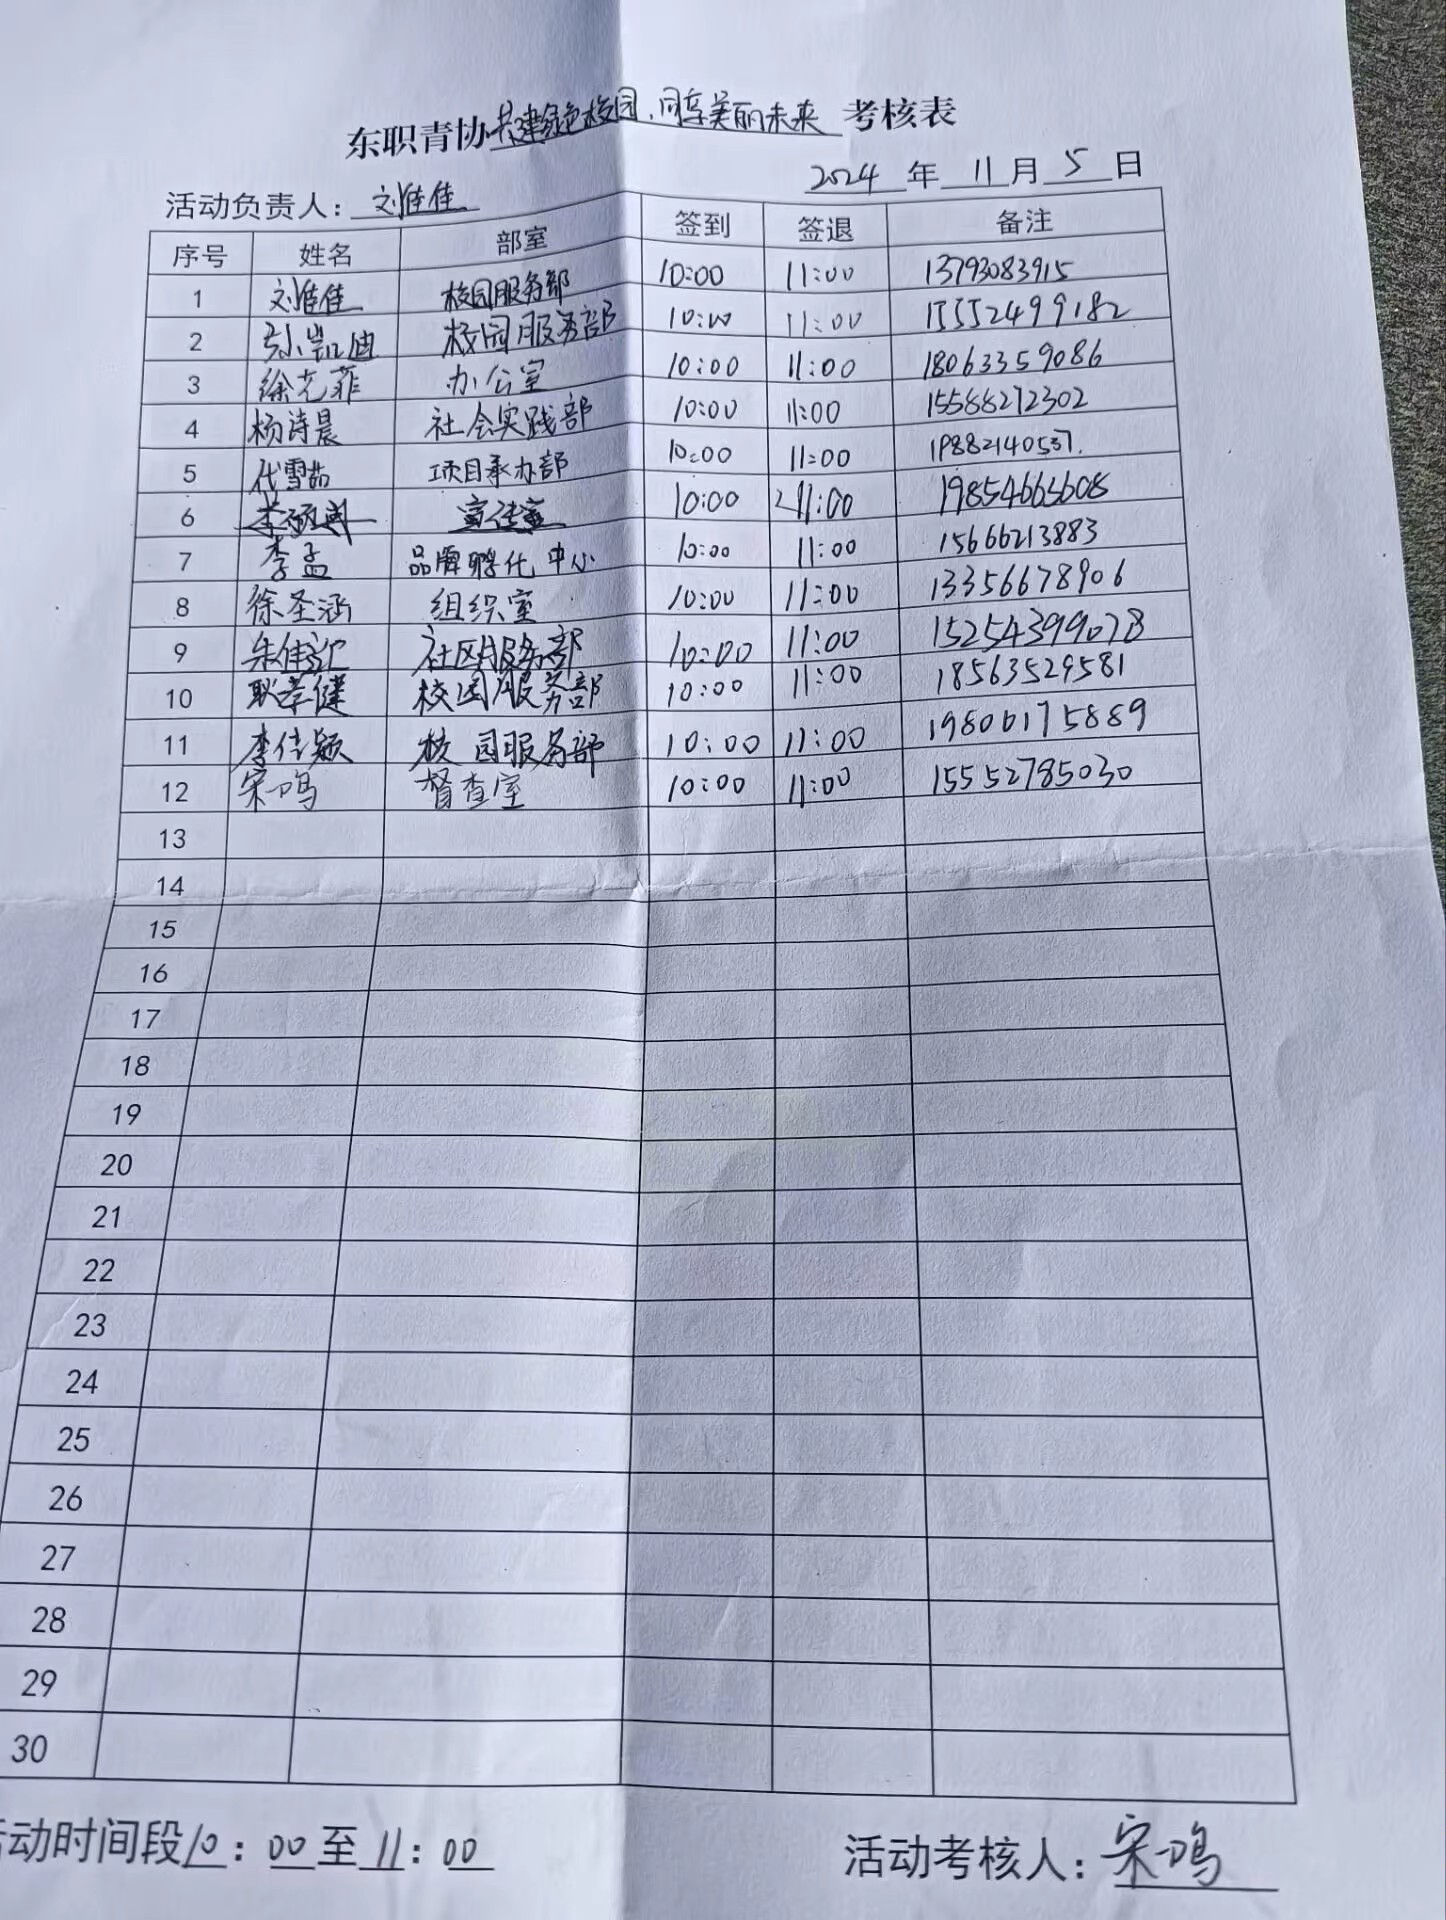 东职青协共建绿色校园、同享美丽未来考核表
2024年11月5日
活动负责人：刘佳佳
序号 姓名 部室 签到 签退 备注
1 刘佳佳 校园服务部 10:00 11:00 13793083915
2 孙凯迪 校园服务部 10:00 11:00 15552499182
3 徐克菲 办公室 10:00 11:00 18063359086
4 杨诗晨 社会实践部 10:00 11:00 15588272302
5 代雪茹 项目承办部 10:00 11:00 19882140537.
6 10:00 11:00 19854665608
7 李孟 品牌孵化中心 10:00 11:00 15666213883
8 徐圣涵 组织室 10:00 11:00 13356678906
9 社区服务部 10:00 11:00 15254399078
10 耿孝健 校园服务部 10:00 11:00 18563529581
11 李佳颖 校园服务部 10:00 11:00 19806175889
12 宋鸣 督查室 10:00 11:00 15552785030
13
14
15
16
17
18
19
20
21
22
23
24
25
26
27
28
29
30
动时间段10：00至11：00
活动考核人：宋鸣